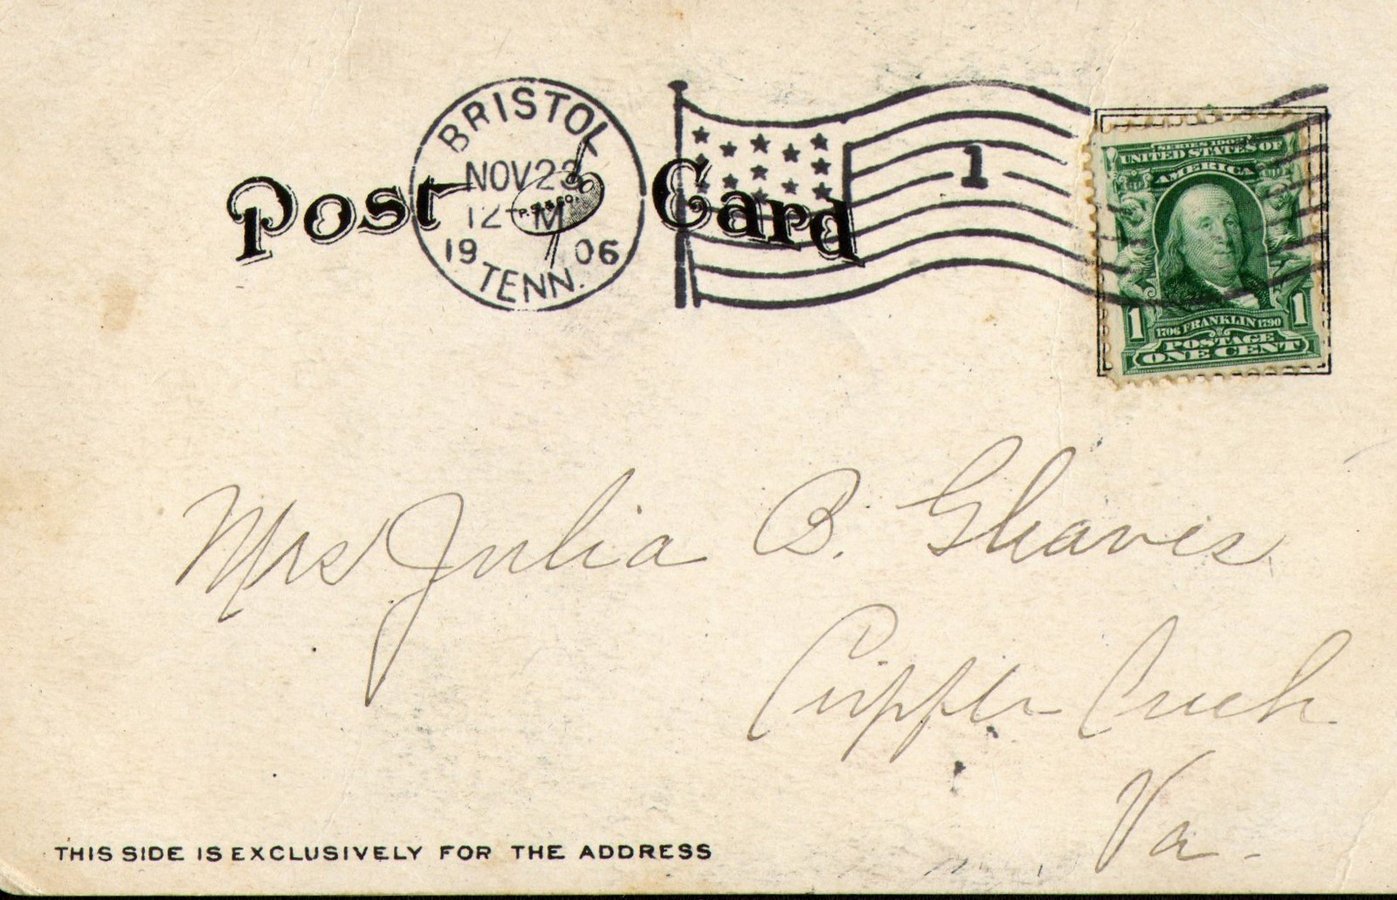 BRISTOL
NOV 23
12 - M
1906
TENN.
Post Card
P.S.&CO.
1
SERIES 1902
UNITED STATES OF
AMERICA
1 1
1706 FRANKLIN 1790
POSTAGE
ONE CENT
Mrs Julia B. Gleaves
Cripple Creek
Va.
THIS SIDE IS EXCLUSIVELY FOR THE ADDRESS